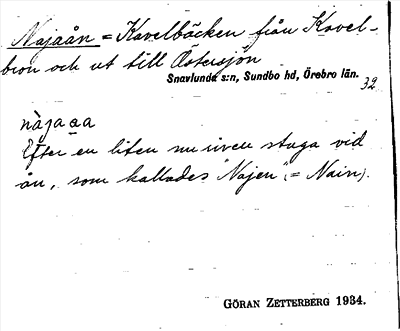 Najaån = Kavelbäcken från Kavel-
bron och ut till Östersjön
Snavlunda s:n, Sundbo hd, Örebro län.
32
nàjaaa
Efter en liten nu riven stuga vid
ån, som kallades "Najen" (= Nain).
GÖRAN ZETTERBERG 1934.